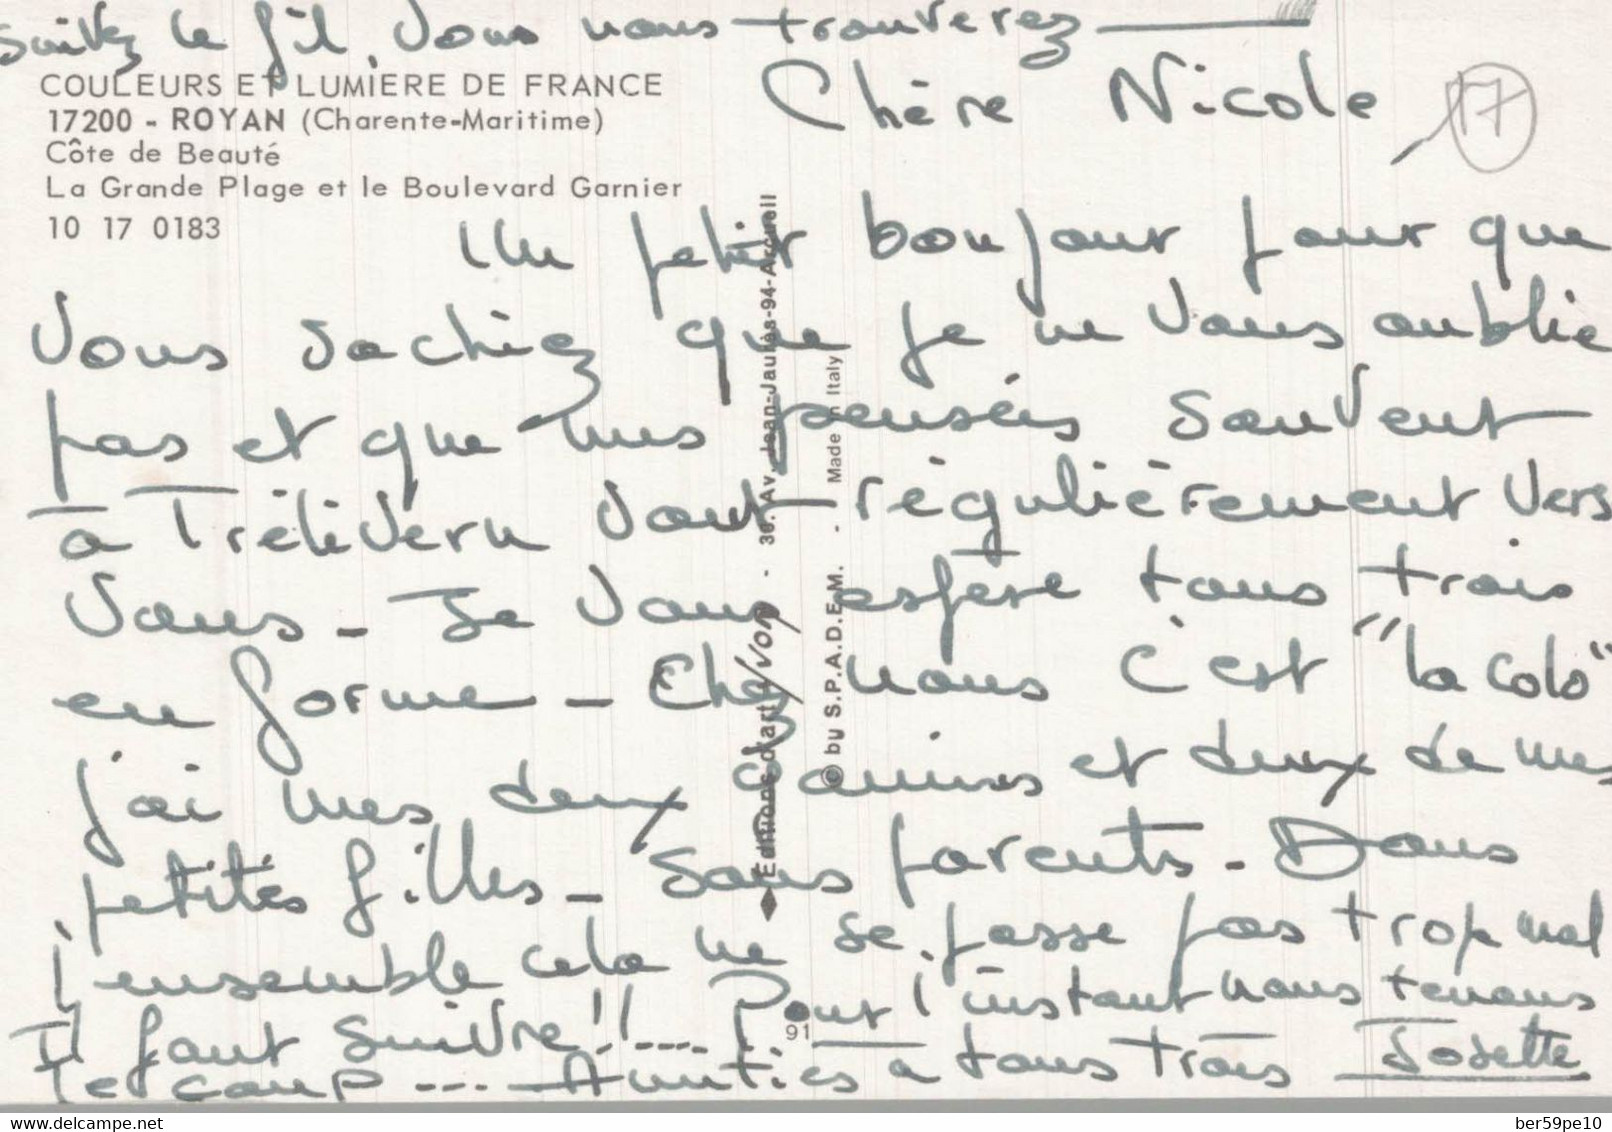 Suivez le fil, vous nous trouverez
COULEURS ET LUMIÈRE DE FRANCE
17200 - ROYAN (Charente-Maritime)
Côte de Beauté
La Grande Plage et le Boulevard Garnier
10 17 0183
Chère Nicole
17
Un petit bonjour pour que
vous sachiez que je ne vous oublie
pas et que mes pensées souvent
à Trélévern vont régulièrement vers
vous - Je vous espère tous trois
en forme - Chez nous c'est "la colo"
j'ai mes deux gamines et deux de mes
petites filles - Sans parents - Dans
l'ensemble cela ne se passe pas trop mal
Il faut suivre !! .... Pour l'instant nous tenons
le coup ... Amitiés à tous trois Josette
Editions d'art Yvon - 30. Av. Jean-Jaurès-94-Arcueil
© by S.P.A.D.E.M. - Made in Italy
91
delcampe.net
ber59pe10